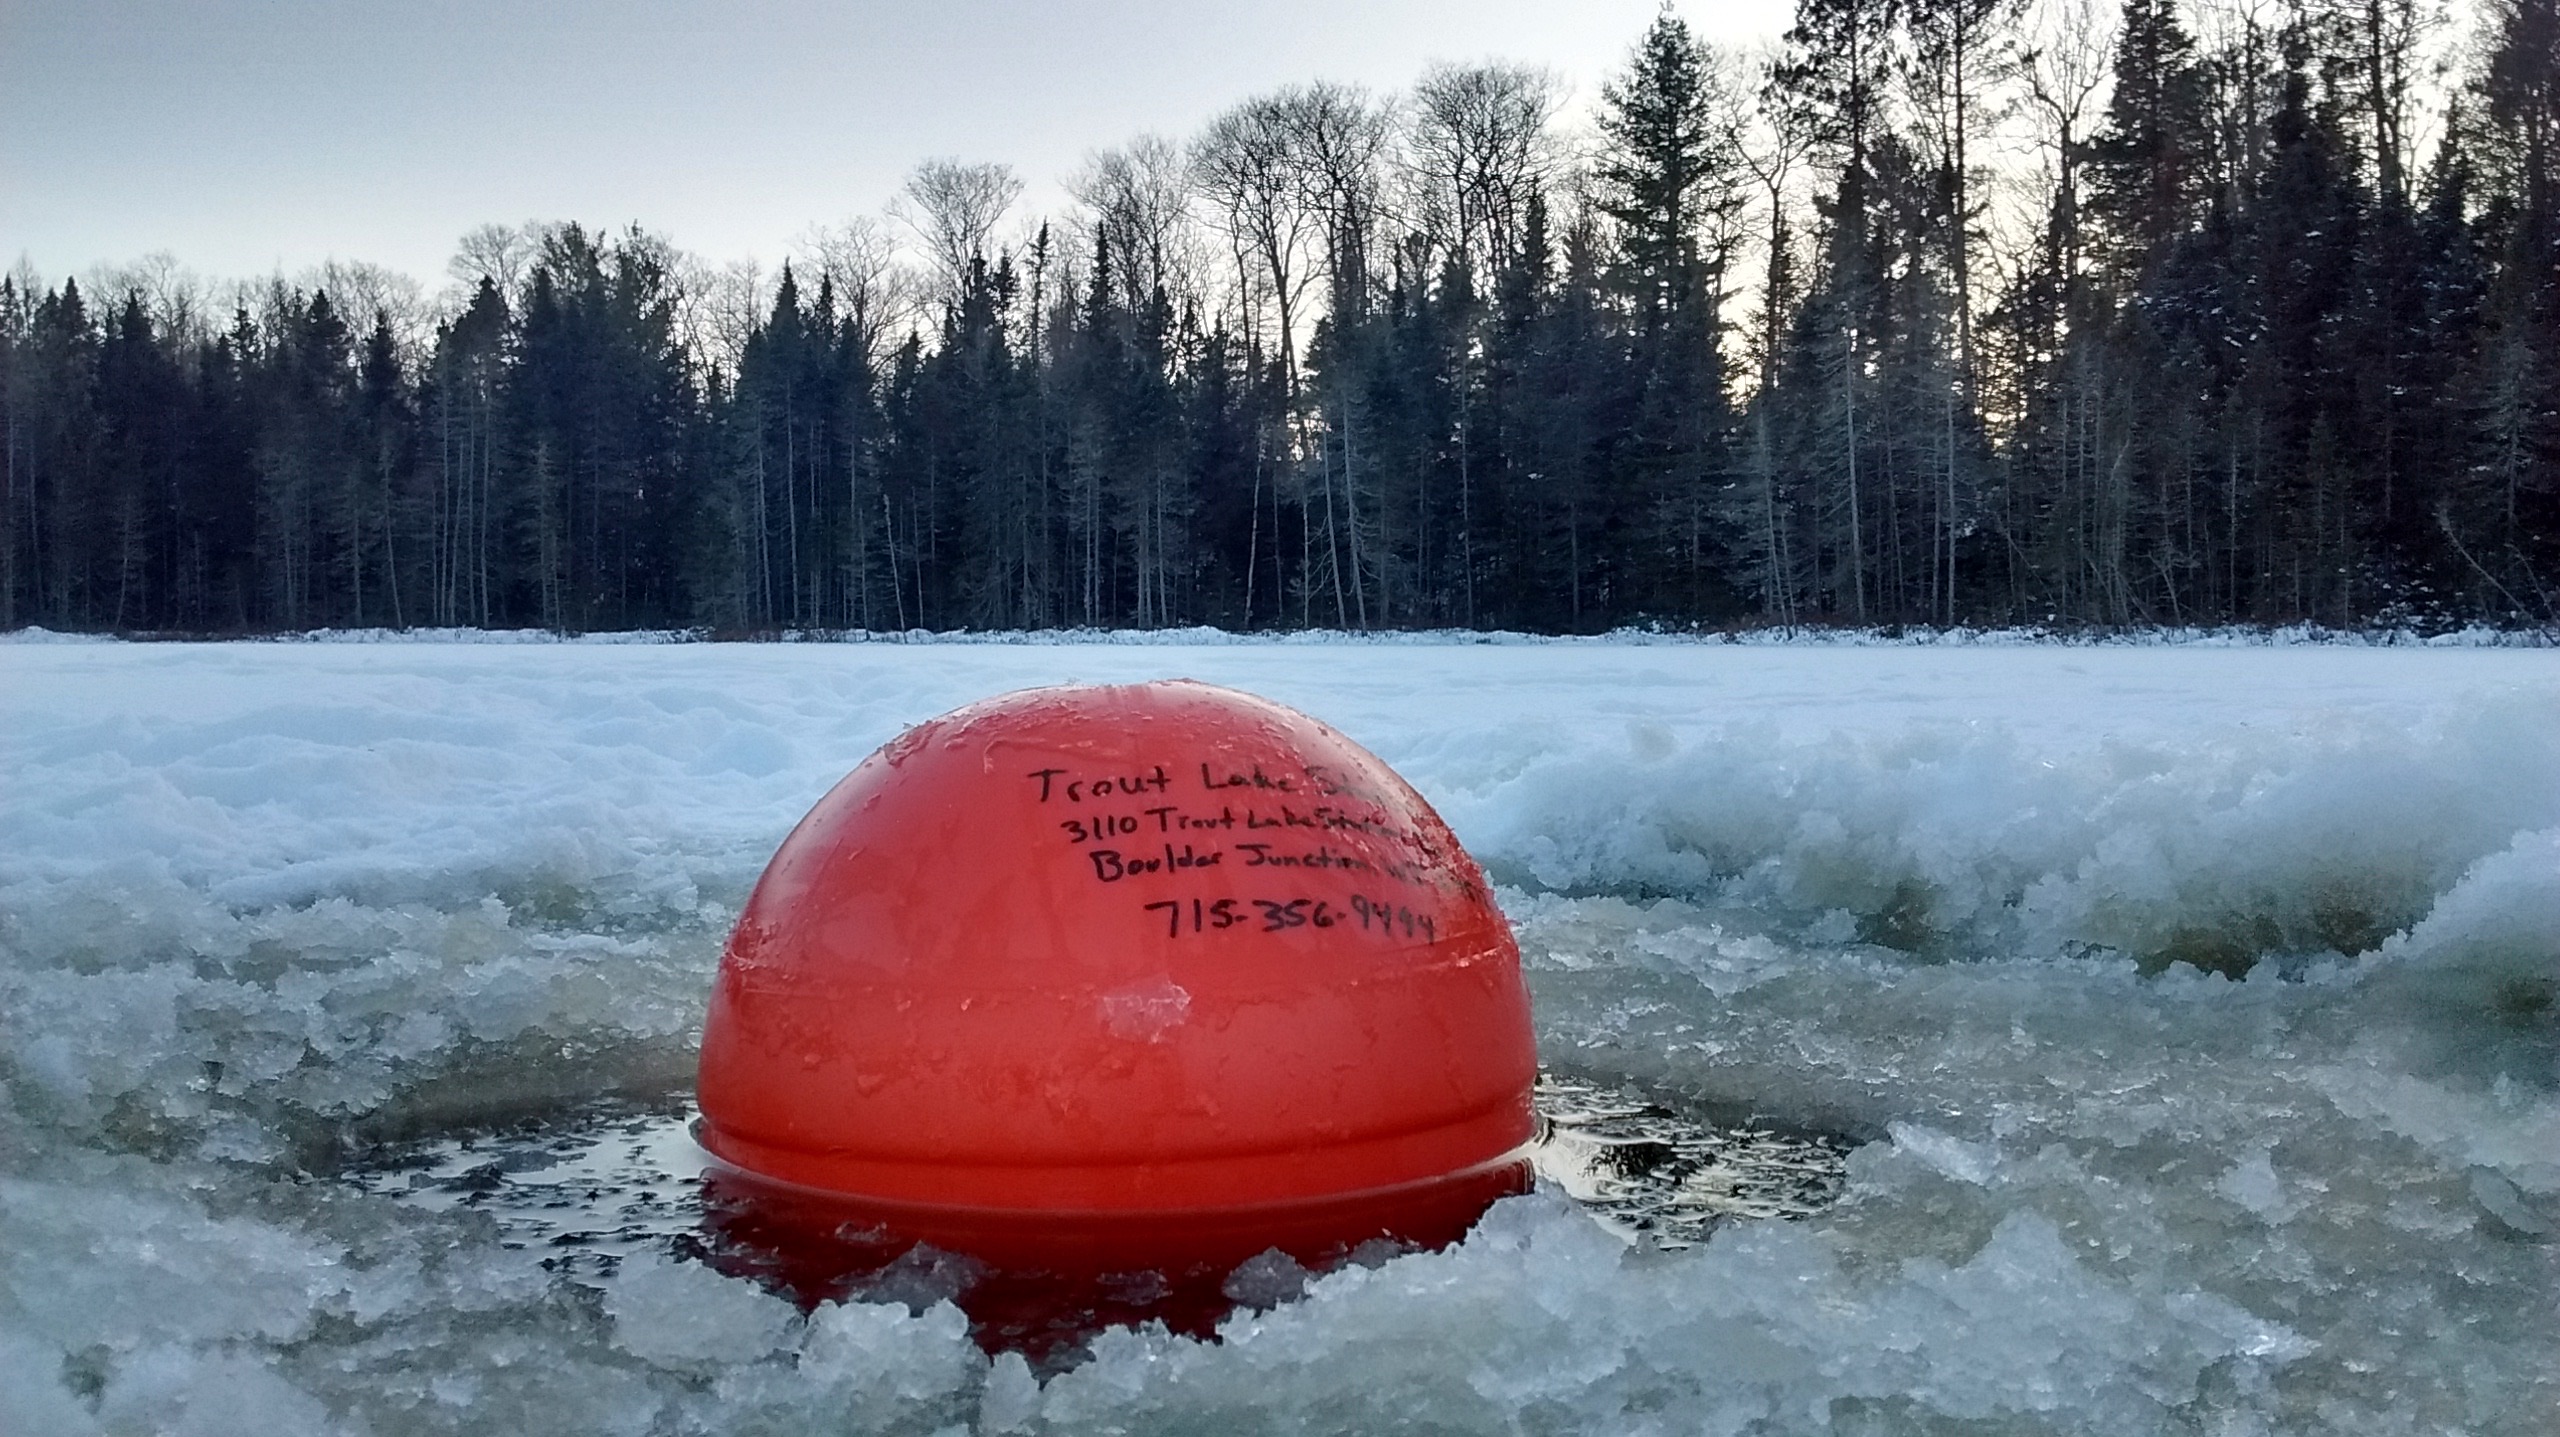 Trout Lake
3110 Trout Lake Station
Boulder Junction
715-356-9494